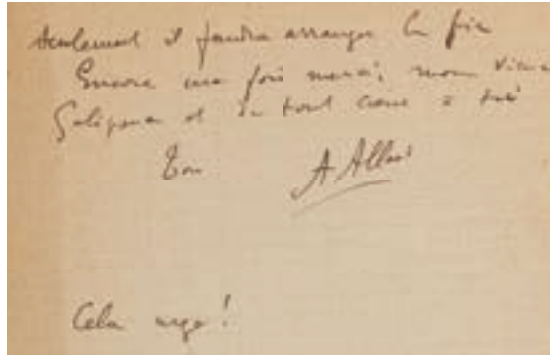 Seulement il faudra arranger la fin
Encore une fois merci, mon vieux
Galipaux et de tout cœur à toi
Ton A Allais
Cela urge !